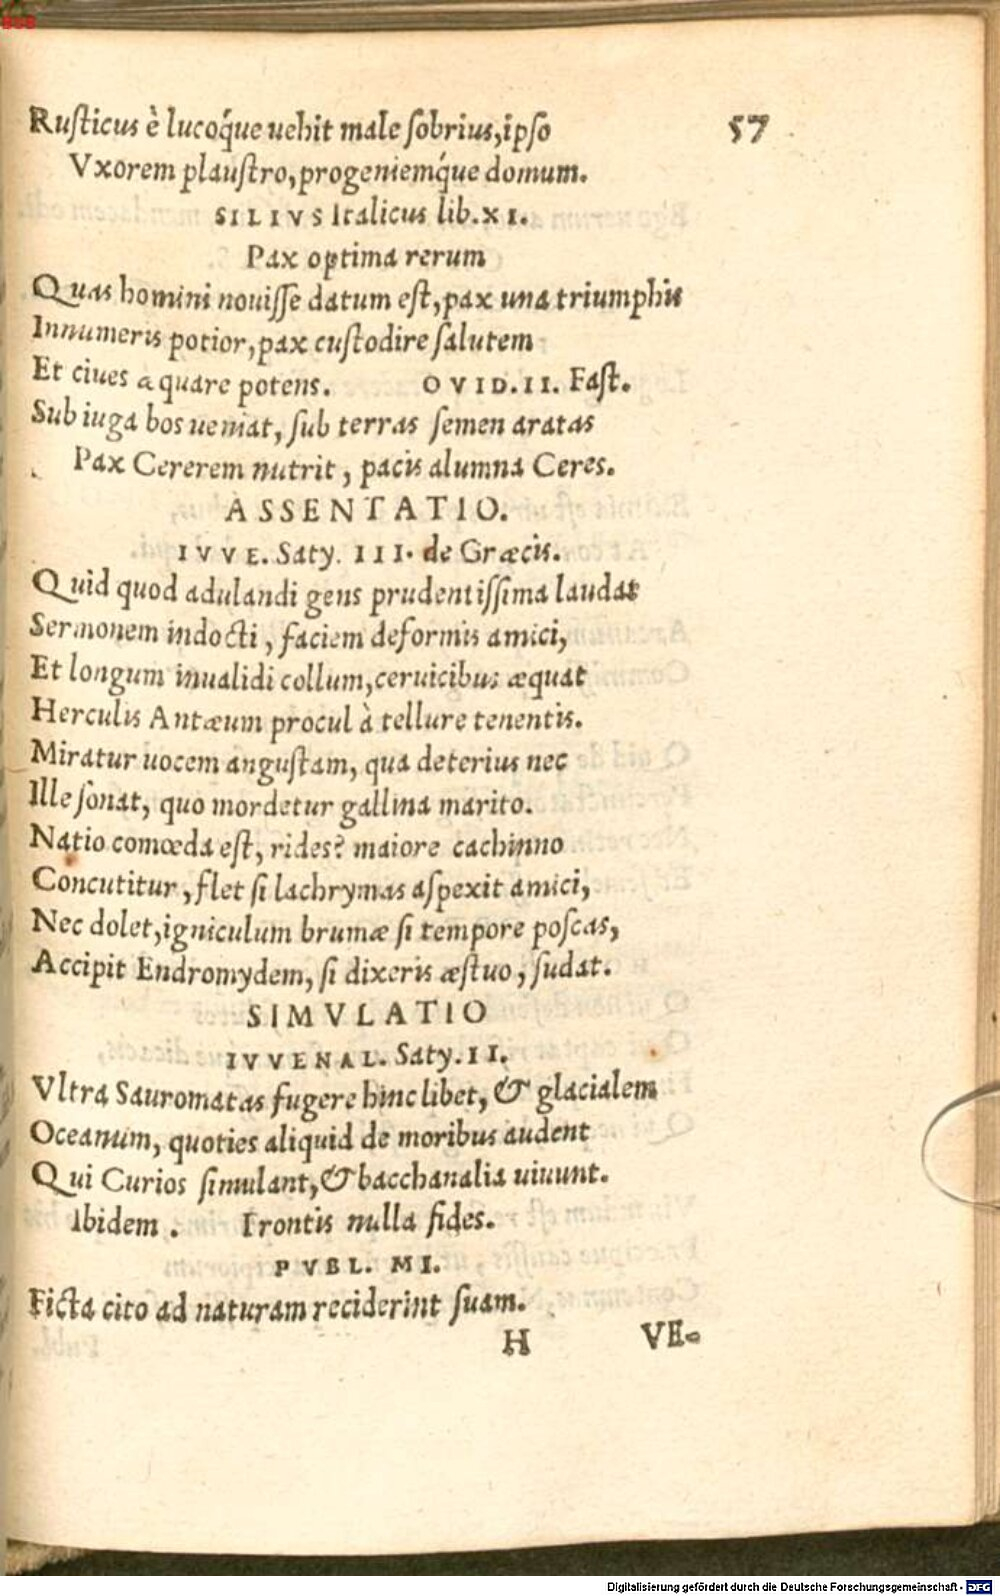 57
Rusticus è lucoq́ue uehit male sobrius, ipso
Vxorem plaustro, progeniemq́ue domum.
SILIVS Italicus lib. XI.
Pax optima rerum
Quas homini nouisse datum est, pax una triumphis
Innumeris potior, pax custodire salutem
Et ciues æquare potens. OVID. II. Fast.
Sub iuga bos ueniat, sub terras semen aratas
Pax Cererem nutrit, pacis alumna Ceres.
ASSENTATIO.
IVVE. Saty. III. de Græcis.
Quid quod adulandi gens prudentissima laudat
Sermonem indocti, faciem deformis amici,
Et longum inualidi collum, ceruicibus æquat
Herculis Antæum procul à tellure tenentis.
Miratur uocem angustam, qua deterius nec
Ille sonat, quo mordetur gallina marito.
Natio comœda est, rides? maiore cachinno
Concutitur, flet si lachrymas aspexit amici,
Nec dolet, igniculum brumæ si tempore poscas,
Accipit Endromydem, si dixeris æstuo, sudat.
SIMVLATIO
IVVENAL. Saty. II.
Vltra Sauromatas fugere hinc libet, & glacialem
Oceanum, quoties aliquid de moribus audent
Qui Curios simulant, & bacchanalia uiuunt.
Ibidem. Frontis nulla fides.
PVBL. MI.
Ficta cito ad naturam reciderint suam.
H VE-
Digitalisierung gefördert durch die Deutsche Forschungsgemeinschaft - DFG